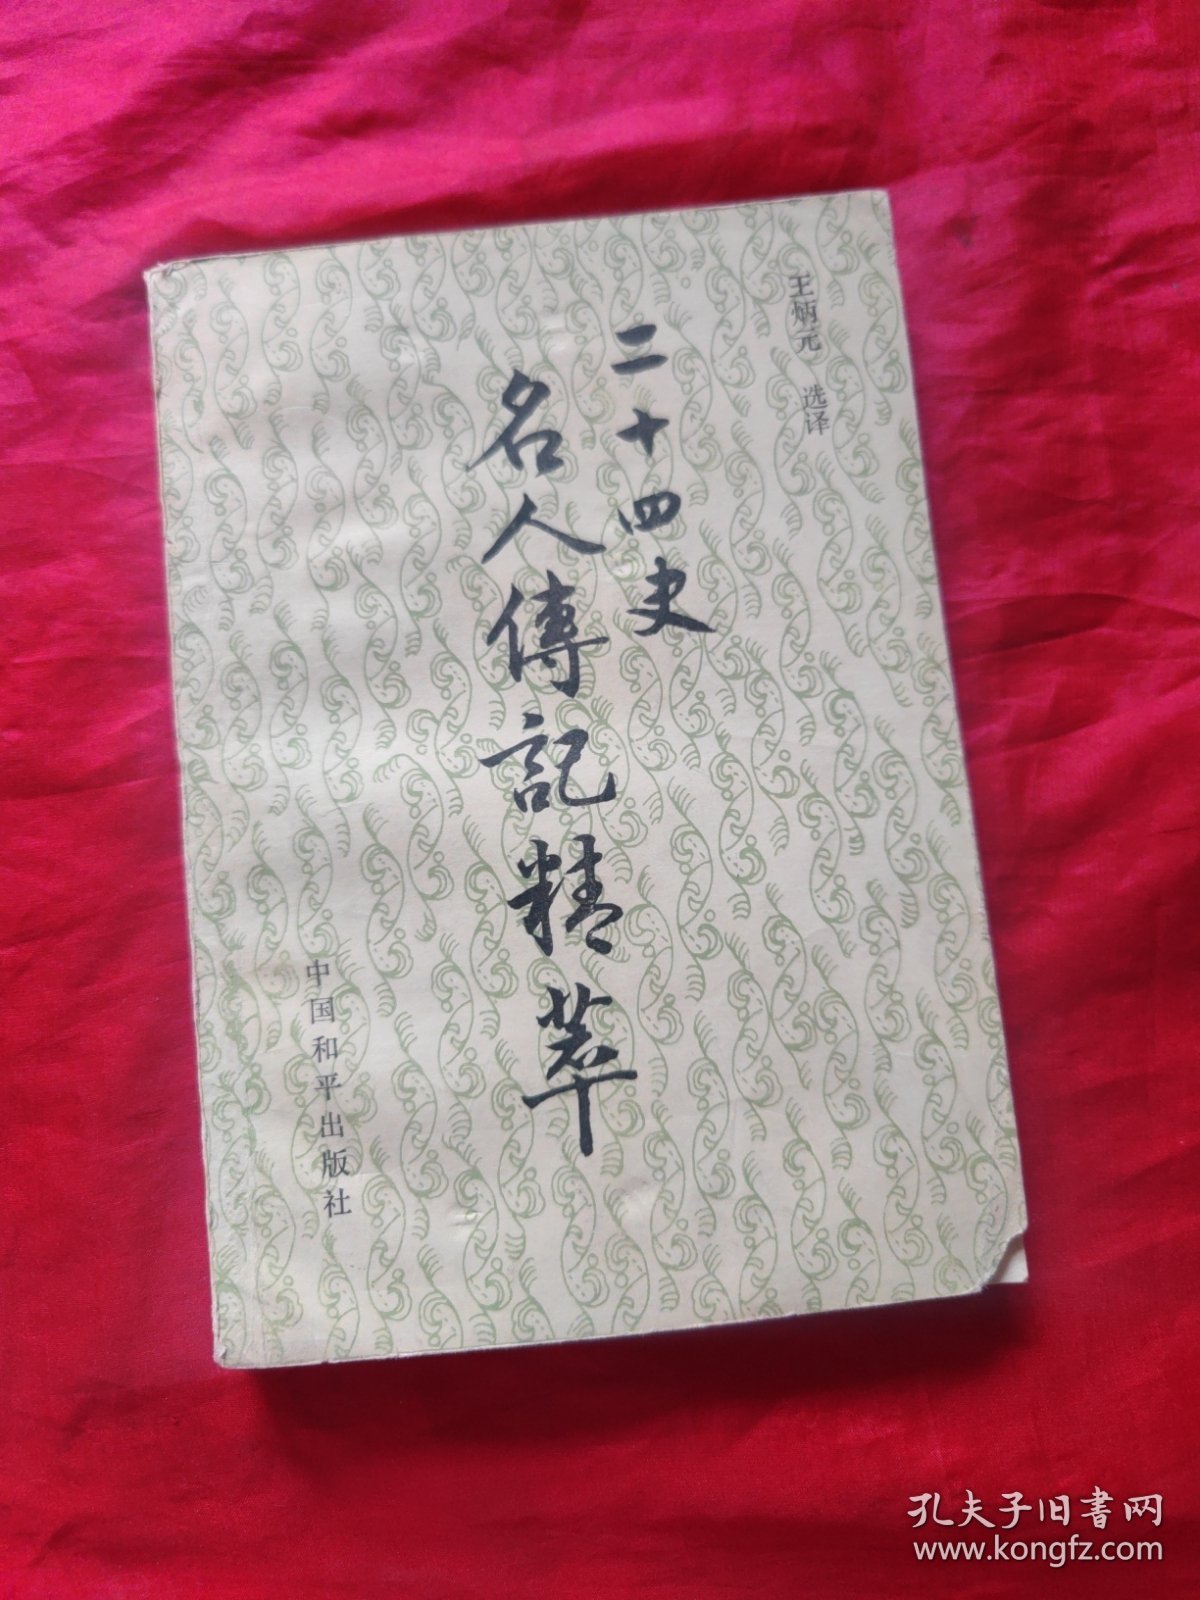 王炳元 选译
二十四史
名人傳記精萃
中国和平出版社
孔夫子旧書网
www.kongfz.com